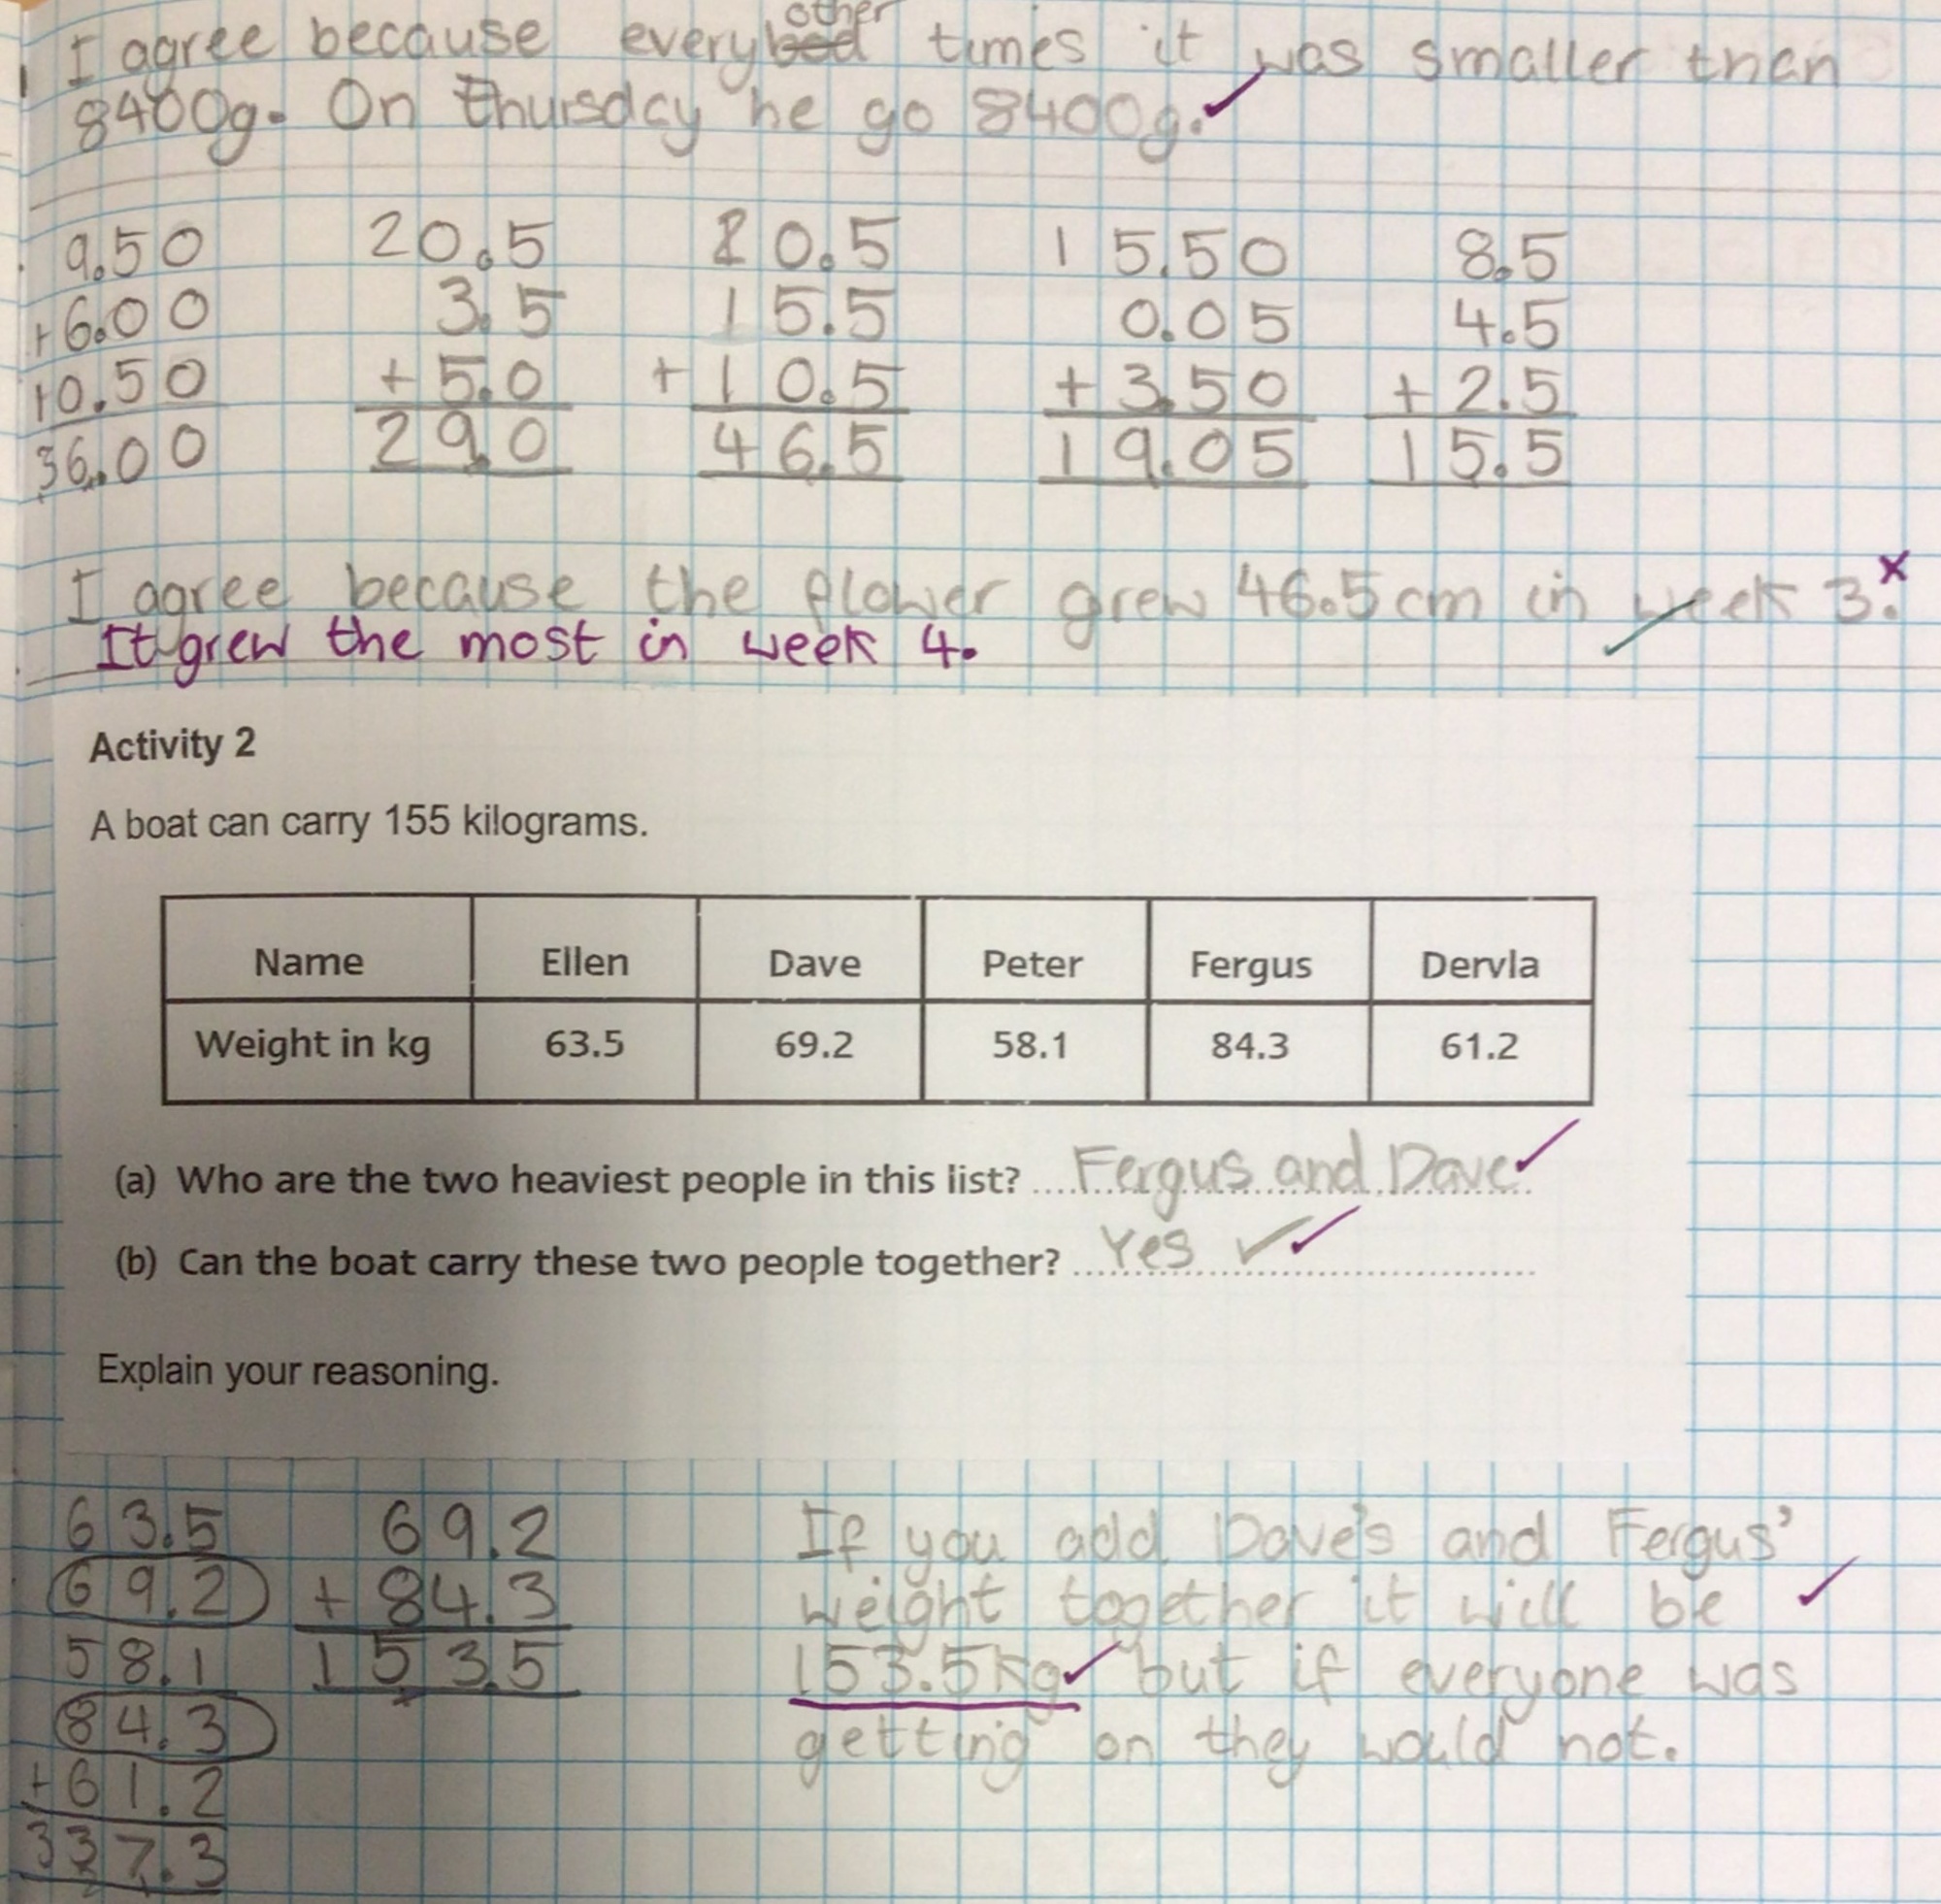 I agree because everybod other times it was smaller then
8400g. On Thursday he go 8400g.
9.50 20.5 20.5 15.50 8.5
+6.00 3.5 15.5 0.05 4.5
10.50 + 5.0 + 10.5 + 3.50 + 2.5
36.00 29.0 46.5 19.05 15.5
I agree because the flower grew 46.5cm in week 3.
It grew the most in week 4.
Activity 2
A boat can carry 155 kilograms.
Name Ellen Dave Peter Fergus Dervla
Weight in kg 63.5 69.2 58.1 84.3 61.2
(a) Who are the two heaviest people in this list? Fergus and Dave
(b) Can the boat carry these two people together? Yes
Explain your reasoning.
63.5 69.2 If you add Dave's and Fergus'
69.2 + 84.3 weight together it will be
58.1 153.5 153.5kg but if everyone was
84.3 getting on they would not.
+61.2
337.3